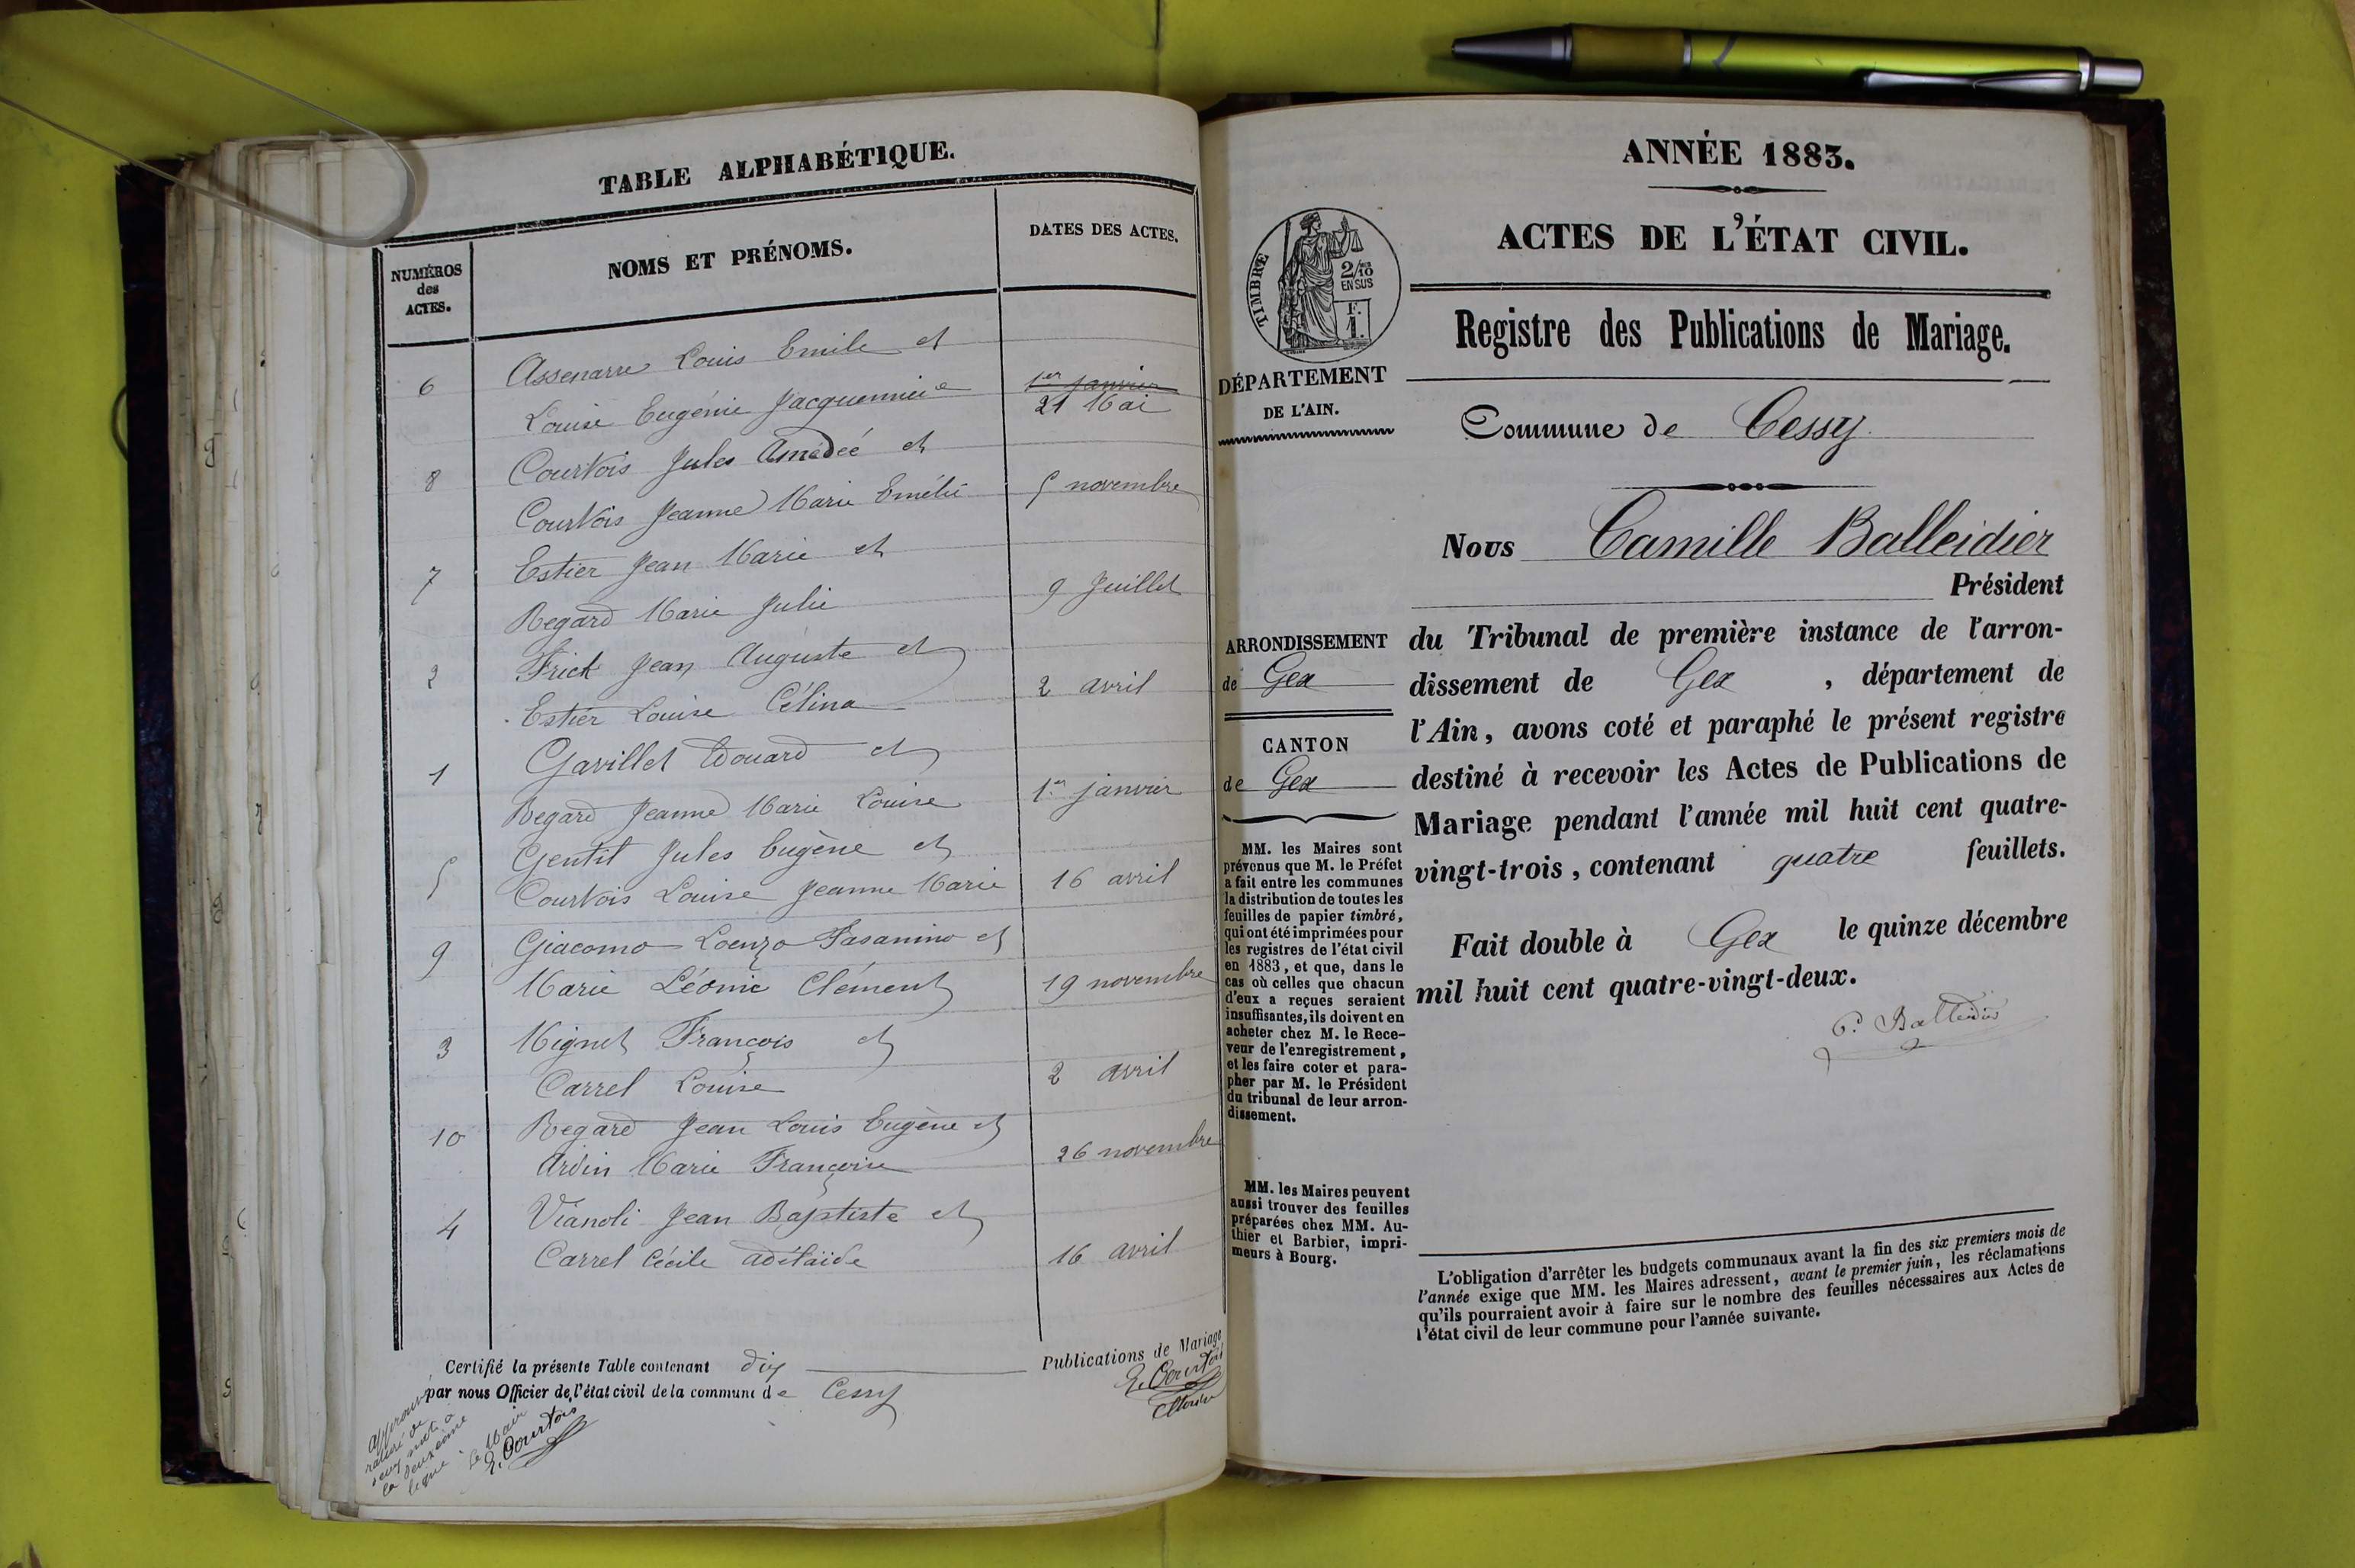 TABLE ALPHABÉTIQUE.
NUMÉROS
des
ACTES.
NOMS ET PRÉNOMS.
DATES DES ACTES.
Louis Emile et
6
Louise Eugénie
1er janvier
21 Mai
Courtois Jules Amédée et
8
Courtois Jeanne Marie Emélie
5 novembre
Estier Jean Marie et
7
Regard Marie Julie
9 Juillet
Frick Jean Auguste et
2
Estier Louise Célina
2 avril
Gavillet Edouard et
1
Regard Jeanne Marie Louise
1er janvier
Gentil Jules Eugène et
5
Courtois Louise Jeanne Marie
16 avril
Giacomo Loenzo Fasanino et
9
Marie Léonie Clément
19 novembre
Mignet François et
3
Carrel Louise
2 avril
Regard Jean Louis Eugène et
10
Ardin Marie Françoise
26 novembre
Vianoli Jean Baptiste et
4
Carrel Cécile adélaïde
16 avril
Certifié la présente Table contenant dix Publications de Mariage
par nous Officier de l'état civil de la commune de Cessy
E. Courtois
approuvé
raturé de
deux mots à
la deuxième
ligne
Le Maire
E. Courtois
ANNÉE 1883.
ACTES DE L'ÉTAT CIVIL.
TIMBRE
2/10
EN SUS
F.
1.
Registre des Publications de Mariage.
DÉPARTEMENT
DE L'AIN.
Commune de Cessy
Nous Camille Balleidier
Président
ARRONDISSEMENT
de Gex
CANTON
de Gex
du Tribunal de première instance de l'arron-
dissement de Gex, département de
l'Ain, avons coté et paraphé le présent registre
destiné à recevoir les Actes de Publications de
Mariage pendant l'année mil huit cent quatre-
vingt-trois, contenant quatre feuillets.
Fait double à Gex le quinze décembre
mil huit cent quatre-vingt-deux.
C. Balleidier
MM. les Maires sont
prévenus que M. le Préfet
a fait entre les communes
la distribution de toutes les
feuilles de papier timbré,
qui ont été imprimées pour
les registres de l'état civil
en 1883, et que, dans le
cas où celles que chacun
d'eux a reçues seraient
insuffisantes, ils doivent en
acheter chez M. le Rece-
veur de l'enregistrement,
et les faire coter et para-
pher par M. le Président
du tribunal de leur arron-
dissement.
MM. les Maires peuvent
aussi trouver des feuilles
préparées chez MM. Au-
thier et Barbier, impri-
meurs à Bourg.
L'obligation d'arrêter les budgets communaux avant la fin des six premiers mois de
l'année exige que MM. les Maires adressent, avant le premier juin, les réclamations
qu'ils pourraient avoir à faire sur le nombre des feuilles nécessaires aux Actes de
l'état civil de leur commune pour l'année suivante.